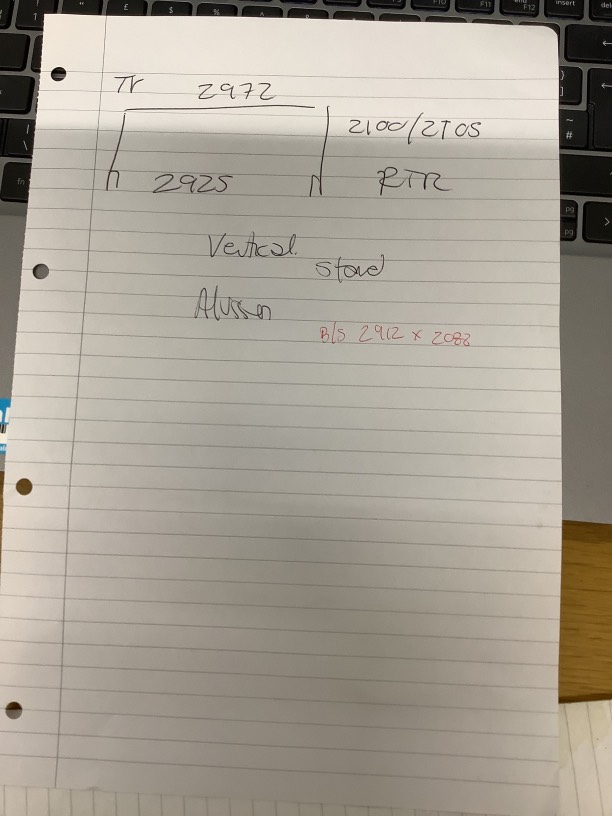 Tr 2972
2100/2105
2925 RTR
Vertical
stone
B/S 2912 x 2088